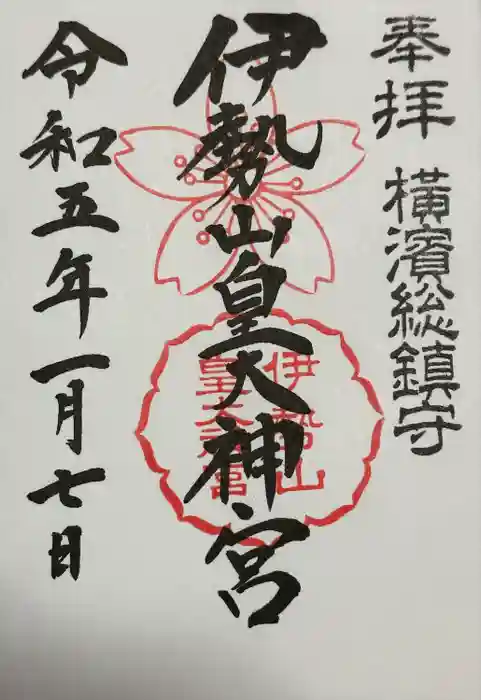 奉拝
横濱総鎮守
伊勢山皇大神宮
伊勢山
皇大神宮
令和五年一月七日